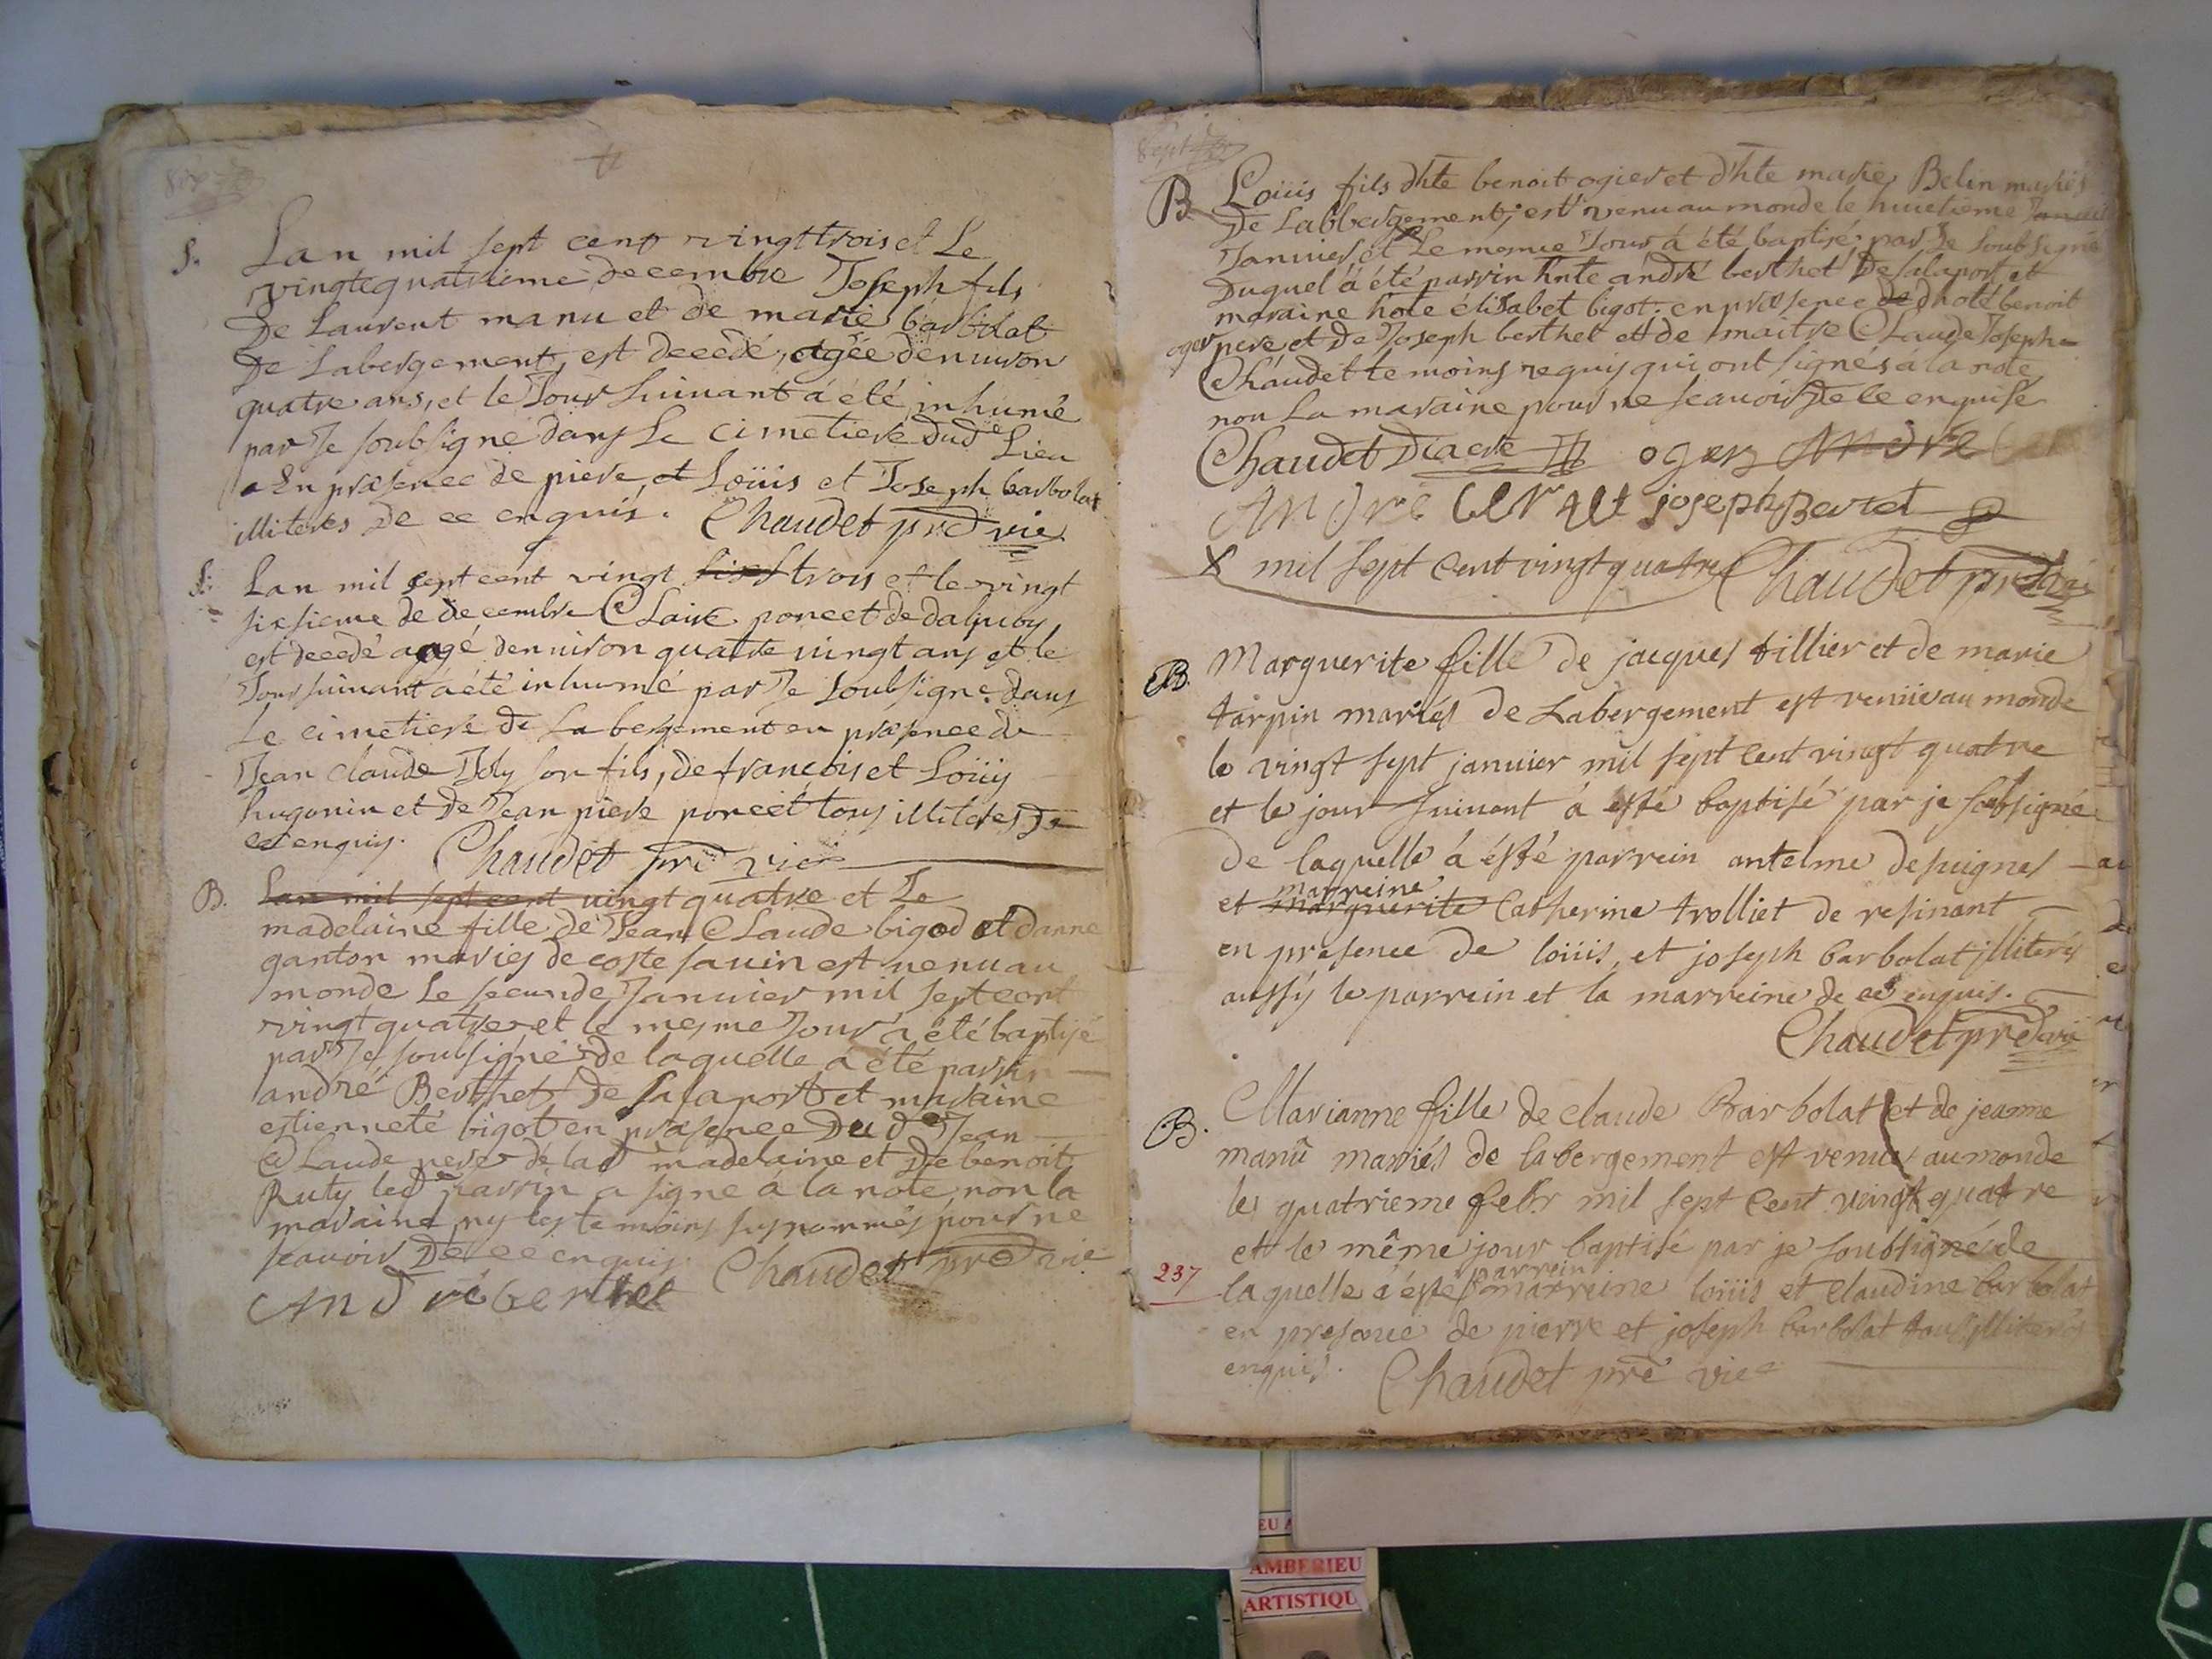 S. Lan mil sept cent vingt trois et Le
vingtequatrieme decembre Joseph fils
De Laurent manu et de marie barbolat
De Labergement, est decédé, agée denuiron
quatre ans, et le Jour Suiuant á été inhumé
par Je soubsigné dans Le cimetiere dud.e Lieu
En præsence de piere, et Loüis et Joseph barbolat
illiterés De ce enquis. Chaudet prê vic
S. Lan mil sept cent vingt trois et le vingt
sixsieme de decembre Claire poncet de
est decedé aagé denuiron quatre uingt ans et le
Jour suiuant a été inhumé par Je soubsigné dans
Le cimetiere de Labergement en præsence de
Jean claude Joly son fils, de françois et Loüis
hugonin et de Jean piere poncet tous illiterés De
ce enquis. Chaudet prê vic
B. Lan mil sept cent uingt quatre et Le
madelaine fille de Jean Claude bigod et danne
ganton mariés de coste sauin est uenu au
monde Le secunde Januier mil sept cent
vingt quatre et le mesme Jour a été baptisé
par Je soubsigné de laquelle á été parrin
andré Berthet De salaport et maraine
estienneté bigot en præsence Dud.e Jean
Claude pere de lad.e madelaine et De benoit
Ruty led.e parrin a signé á la note, non la
maraine ny les temoins susnommés pour ne
scauoir De ce enquis. Chaudet prê vic
André berthet
B Loüis fils dhte benoit ogier et dhte marie Belin mariés
De Labbergement, est venu au monde le huictieme
Januier et Le mesme Jour á été baptisé par Je soubsigné
Duquel á été parrin hnte andré berthet De salaport et
maraine hote élisabet bigot. en præsence de dhoté benoit
oger pere et De Joseph berthet et de maitre Claude Joseph
Chaudet temoins requis qui ont signés á la note
non La maraine pour ne scauoir De ce enquise
Chaudet Diacre oger Andre
André berthet joseph Bertet
X mil sept cent vingt quatre Chaudet prê vic
B. Marguerite fille de jacques tillier et de marie
tarpin mariés de Labergement est veniie au monde
le vingt sept januier mil sept cent vingt quatre
et le jour suiuant á esté baptisé par je sobsigné
De laquelle á ésté parrein antelme de
marreine
et marguerite Catherine trolliet de resinant
en presence de loüis, et joseph barbolat illiterés
aussy le parrein et la marreine de ce enquis.
Chaudet prê vic
B. Marianne fille de claude Barbolat et de jeanne
manû mariés de labergement est venue au monde
le quatrieme febr mil sept cent vingt quatre
et le même jour baptisé par je soubsigné de
parrein
237 laquelle á ésté marreine loüis et claudine barbolat
en presance de pierre et joseph barbolat tous illiterés
enquis. Chaudet prê vic
AMBERIEU
ARTISTIQU